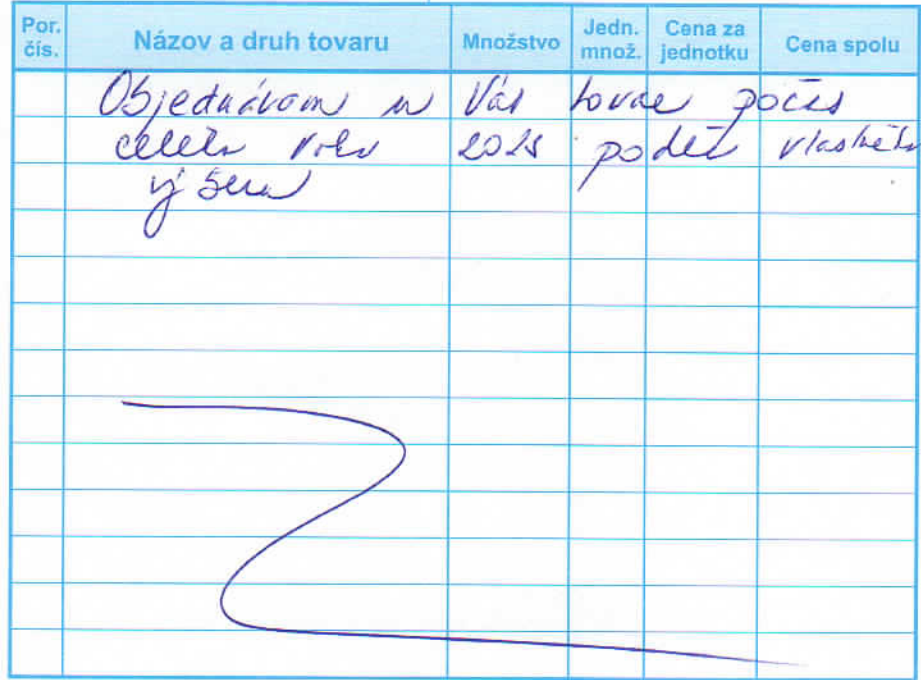 Por. čís. Názov a druh tovaru Množstvo Jedn. množ. Cena za jednotku Cena spolu
Objednávam u Vás tovar počas
celého roku 2025 podľa vlastného
výberu